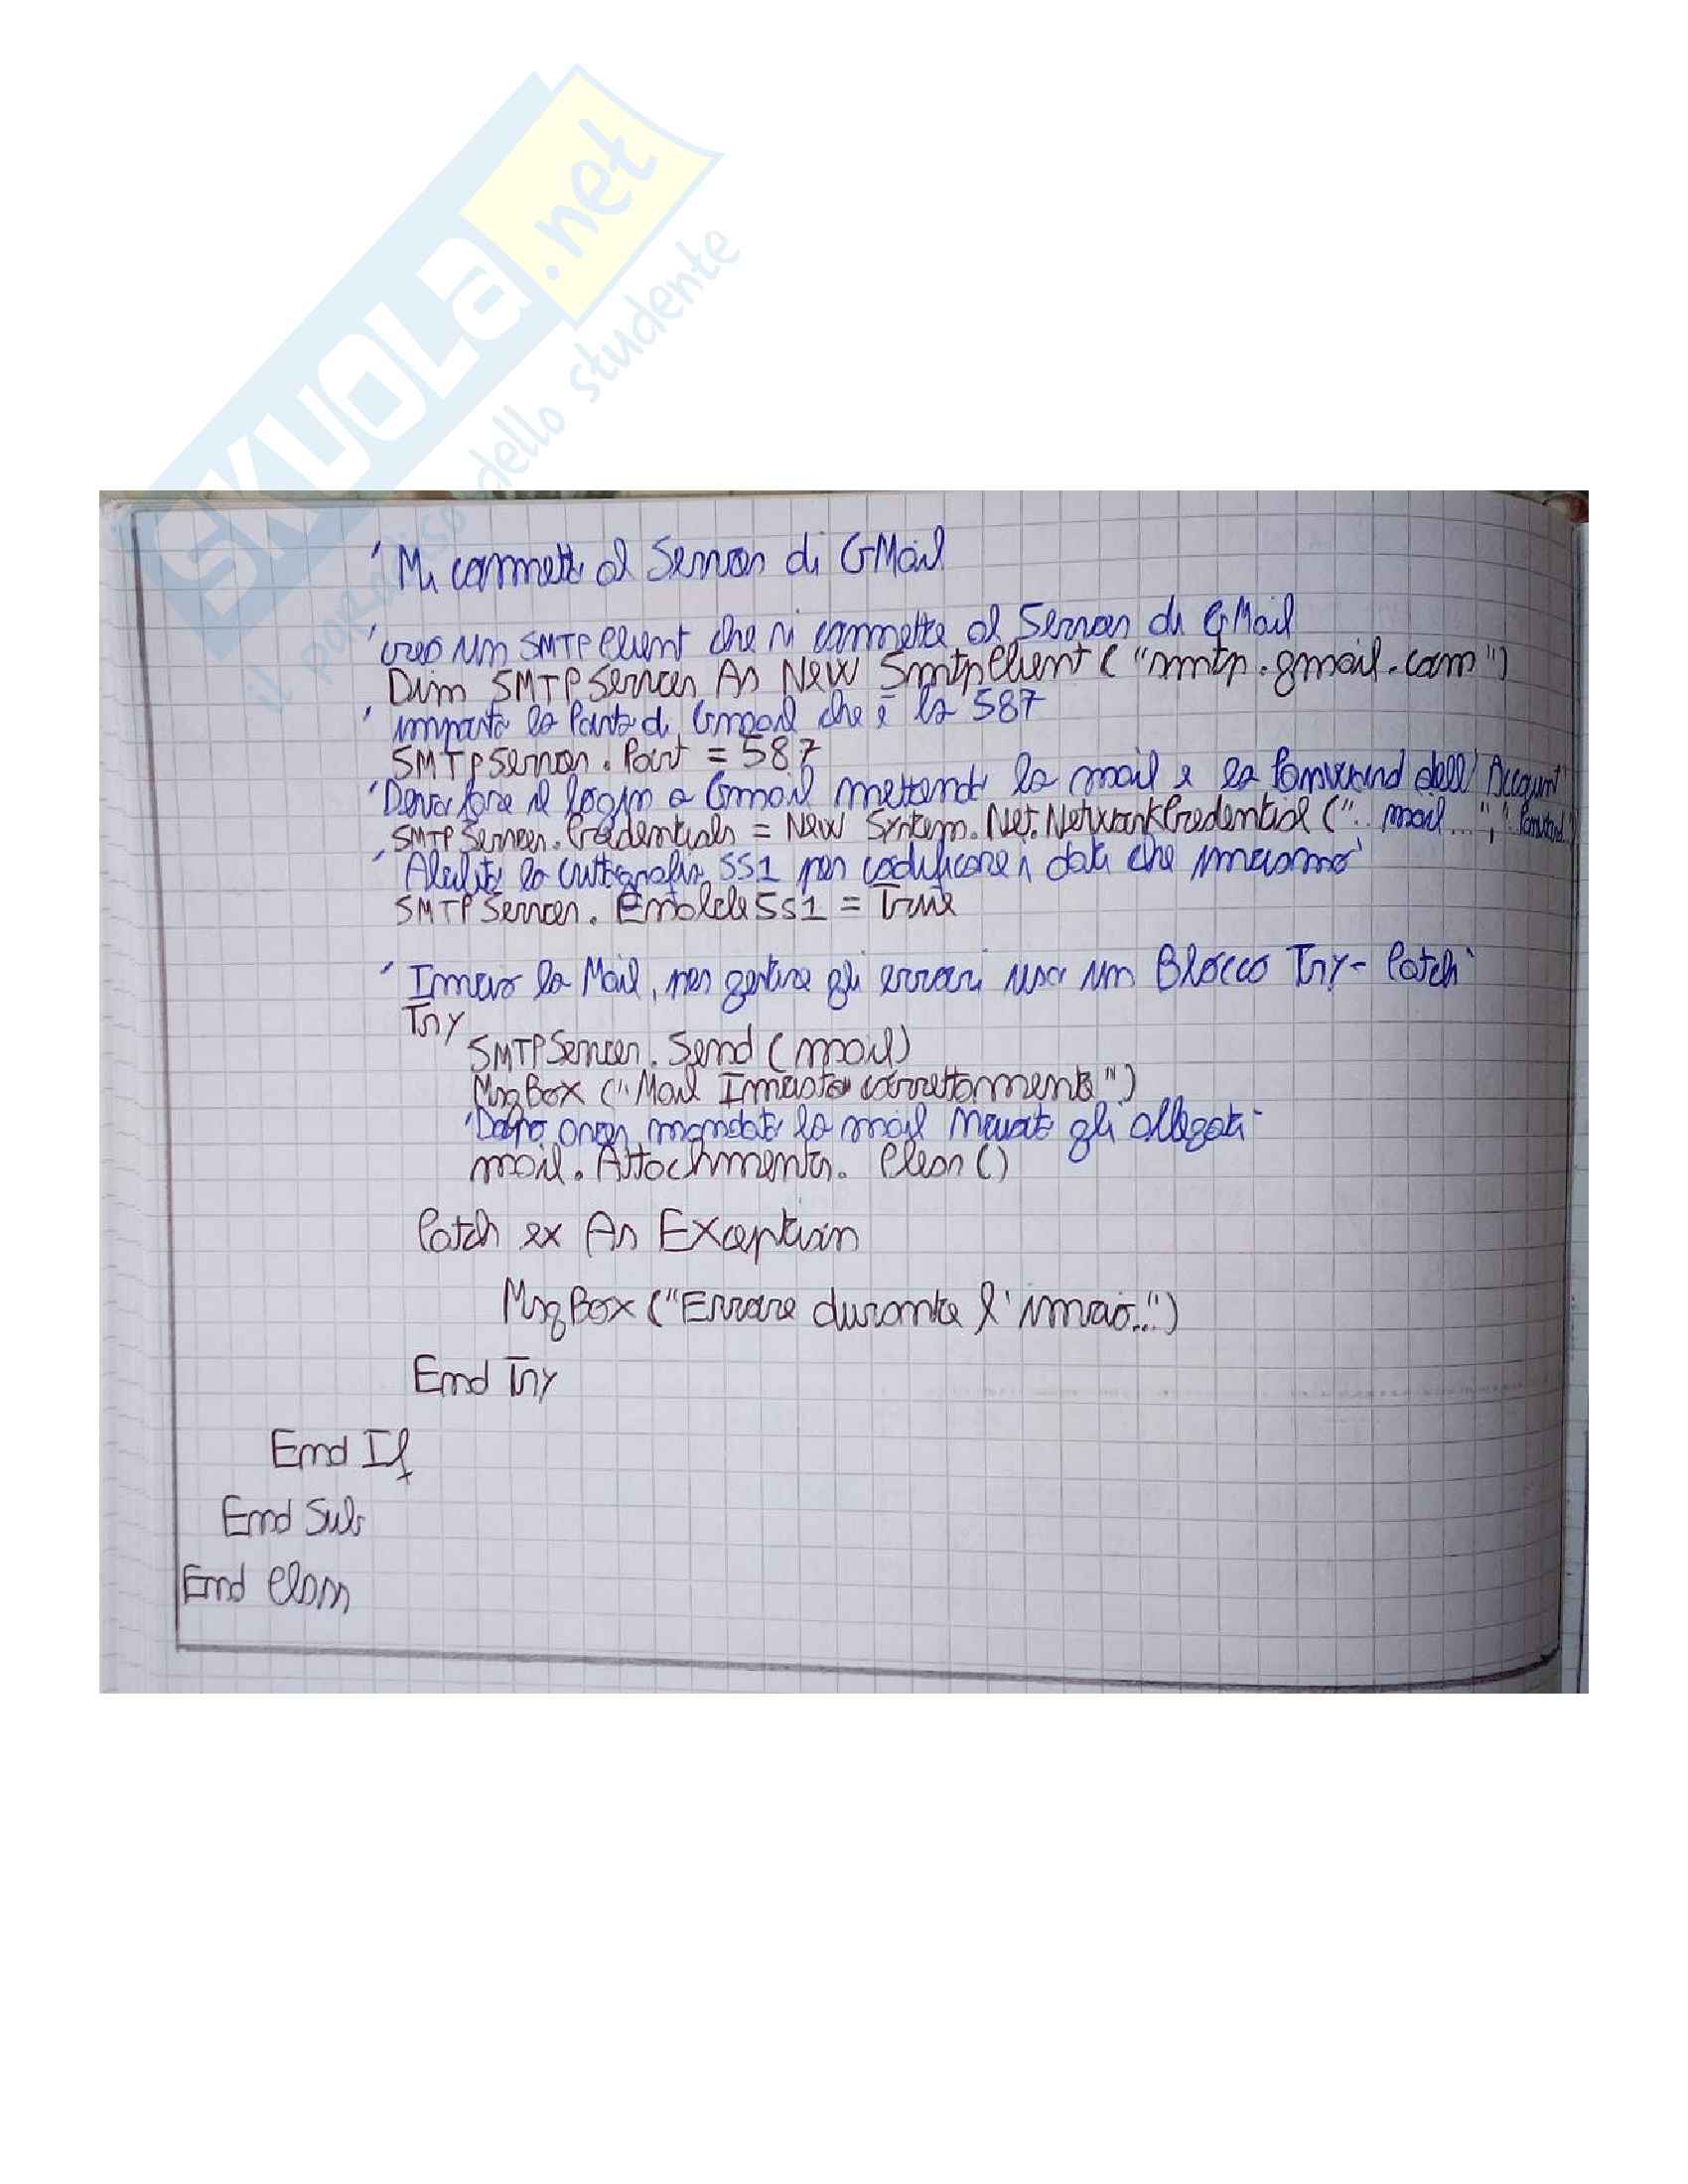 SKUOLA.net
il paradiso dello studente
'Mi connetto al Server di GMail
'creo un SMTP Client che si connette al Server di GMail
Dim SMTPServer As New SmtpClient ("smtp.gmail.com")
'imposto la Porta di Gmail che è la 587
SMTPServer.Port = 587
'Devo fare il login a Gmail mettendo la mail e la Password dell'Account
SMTPServer.Credentials = New System.Net.NetworkCredential ("..mail...", "Password
'Abilito la crittografia SSl per codificare i dati che inviamo'
SMTPServer.EnableSSl = True
'Invio la Mail, per gestire gli errori uso un Blocco Try-Catch'
Try
SMTPServer.Send (mail)
MsgBox ("Mail Inviata correttamente")
'Dopo aver mandato la mail gli allegati
mail.Attachments.Clear()
Catch ex As Exception
MsgBox ("Errore durante l'invio...")
End Try
End If
End Sub
End Class